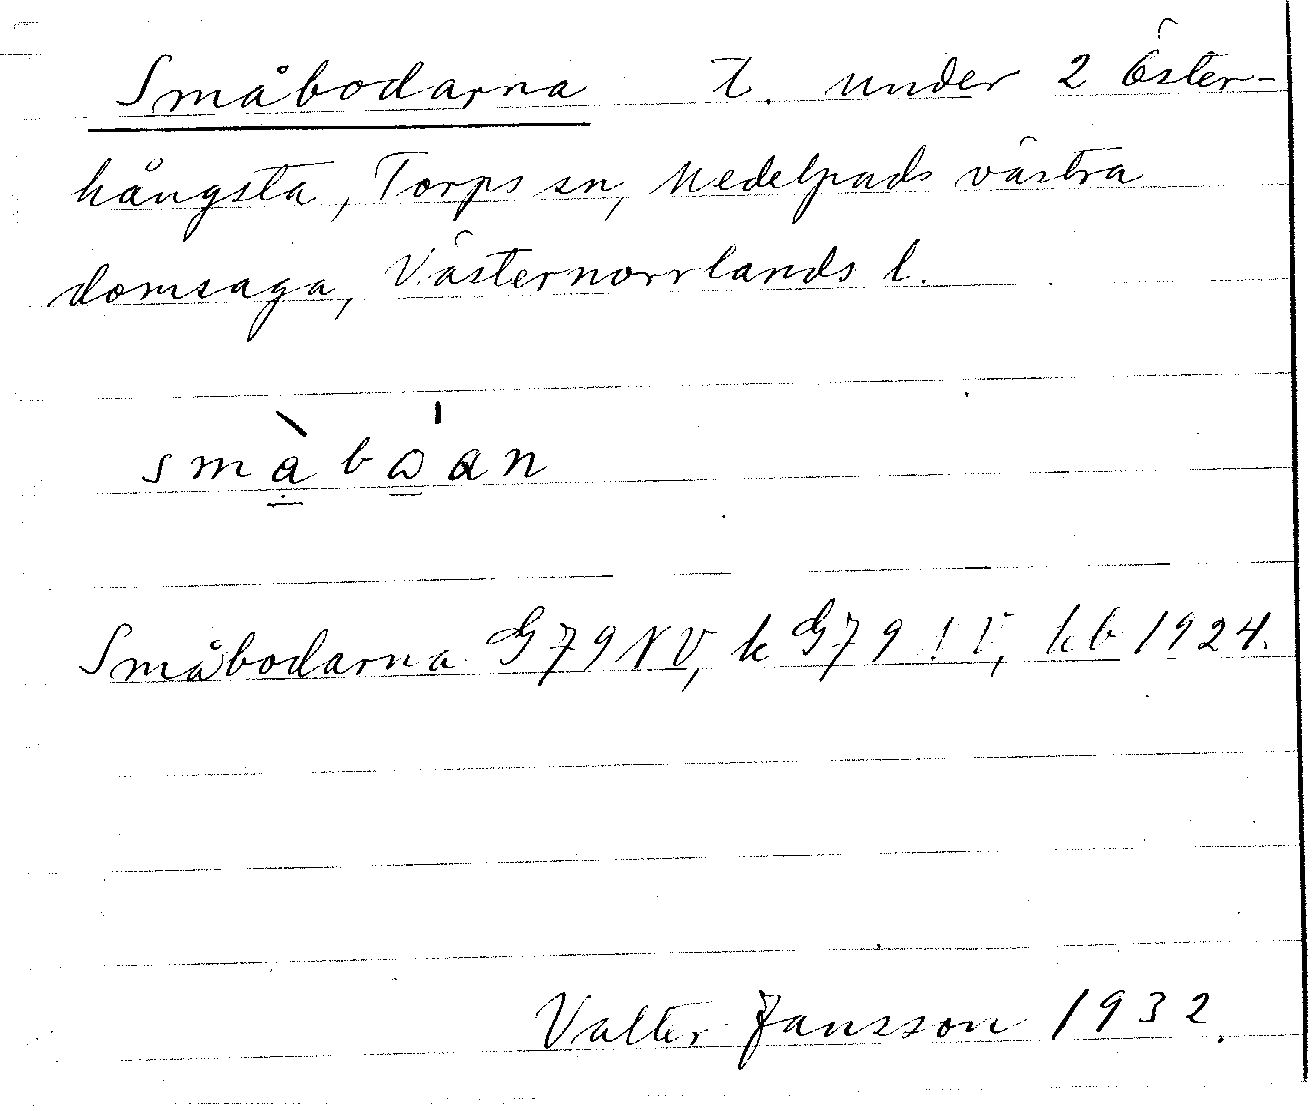 Småbodarna t. under 2 Öster-
hångsta, Torps sn, Medelpads västra
domsaga, Västernorrlands l.
Småbodarna G79NV, k G79 kb 1924.
Valter Jansson 1932.